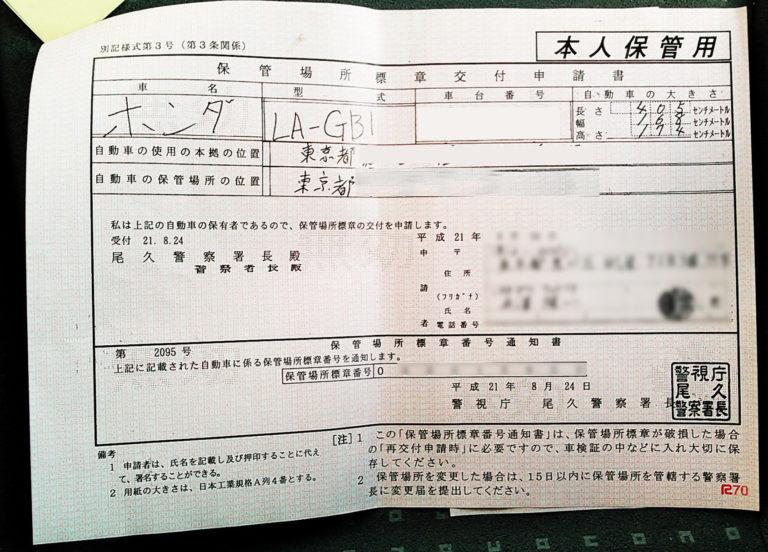 別記様式第３号（第３条関係）
本人保管用
保管場所標章交付申請書
車名 型式 車台番号 自動車の大きさ
ホンダ LA-GB1
長さ 405 センチメートル
幅 168 センチメートル
高さ 174 センチメートル
自動車の使用の本拠の位置 東京都
自動車の保管場所の位置 東京都
私は上記の自動車の保有者であるので、保管場所標章の交付を申請します。
受付 21. 8.24 平成 21年
尾久警察署長殿
警察署長殿
申 〒
住所
請 (フリガナ)
氏名
者 電話番号
保管場所標章番号通知書
第 2095 号
上記に記載された自動車に係る保管場所標章番号を通知します。
保管場所標章番号 0
平成 21年 8月 24日
警視庁 尾久警察署長
警視庁
尾久
警察署長
備考
1 申請者は、氏名を記載し及び押印することに代え
て、署名することができる。
2 用紙の大きさは、日本工業規格Ａ列４番とする。
［注］1 この「保管場所標章番号通知書」は、保管場所標章が破損した場合
の「再交付申請時」に必要ですので、車検証の中などに入れ大切に保
存してください。
2 保管場所を変更した場合は、15日以内に保管場所を管轄する警察署
長に変更届を提出してください。
R70